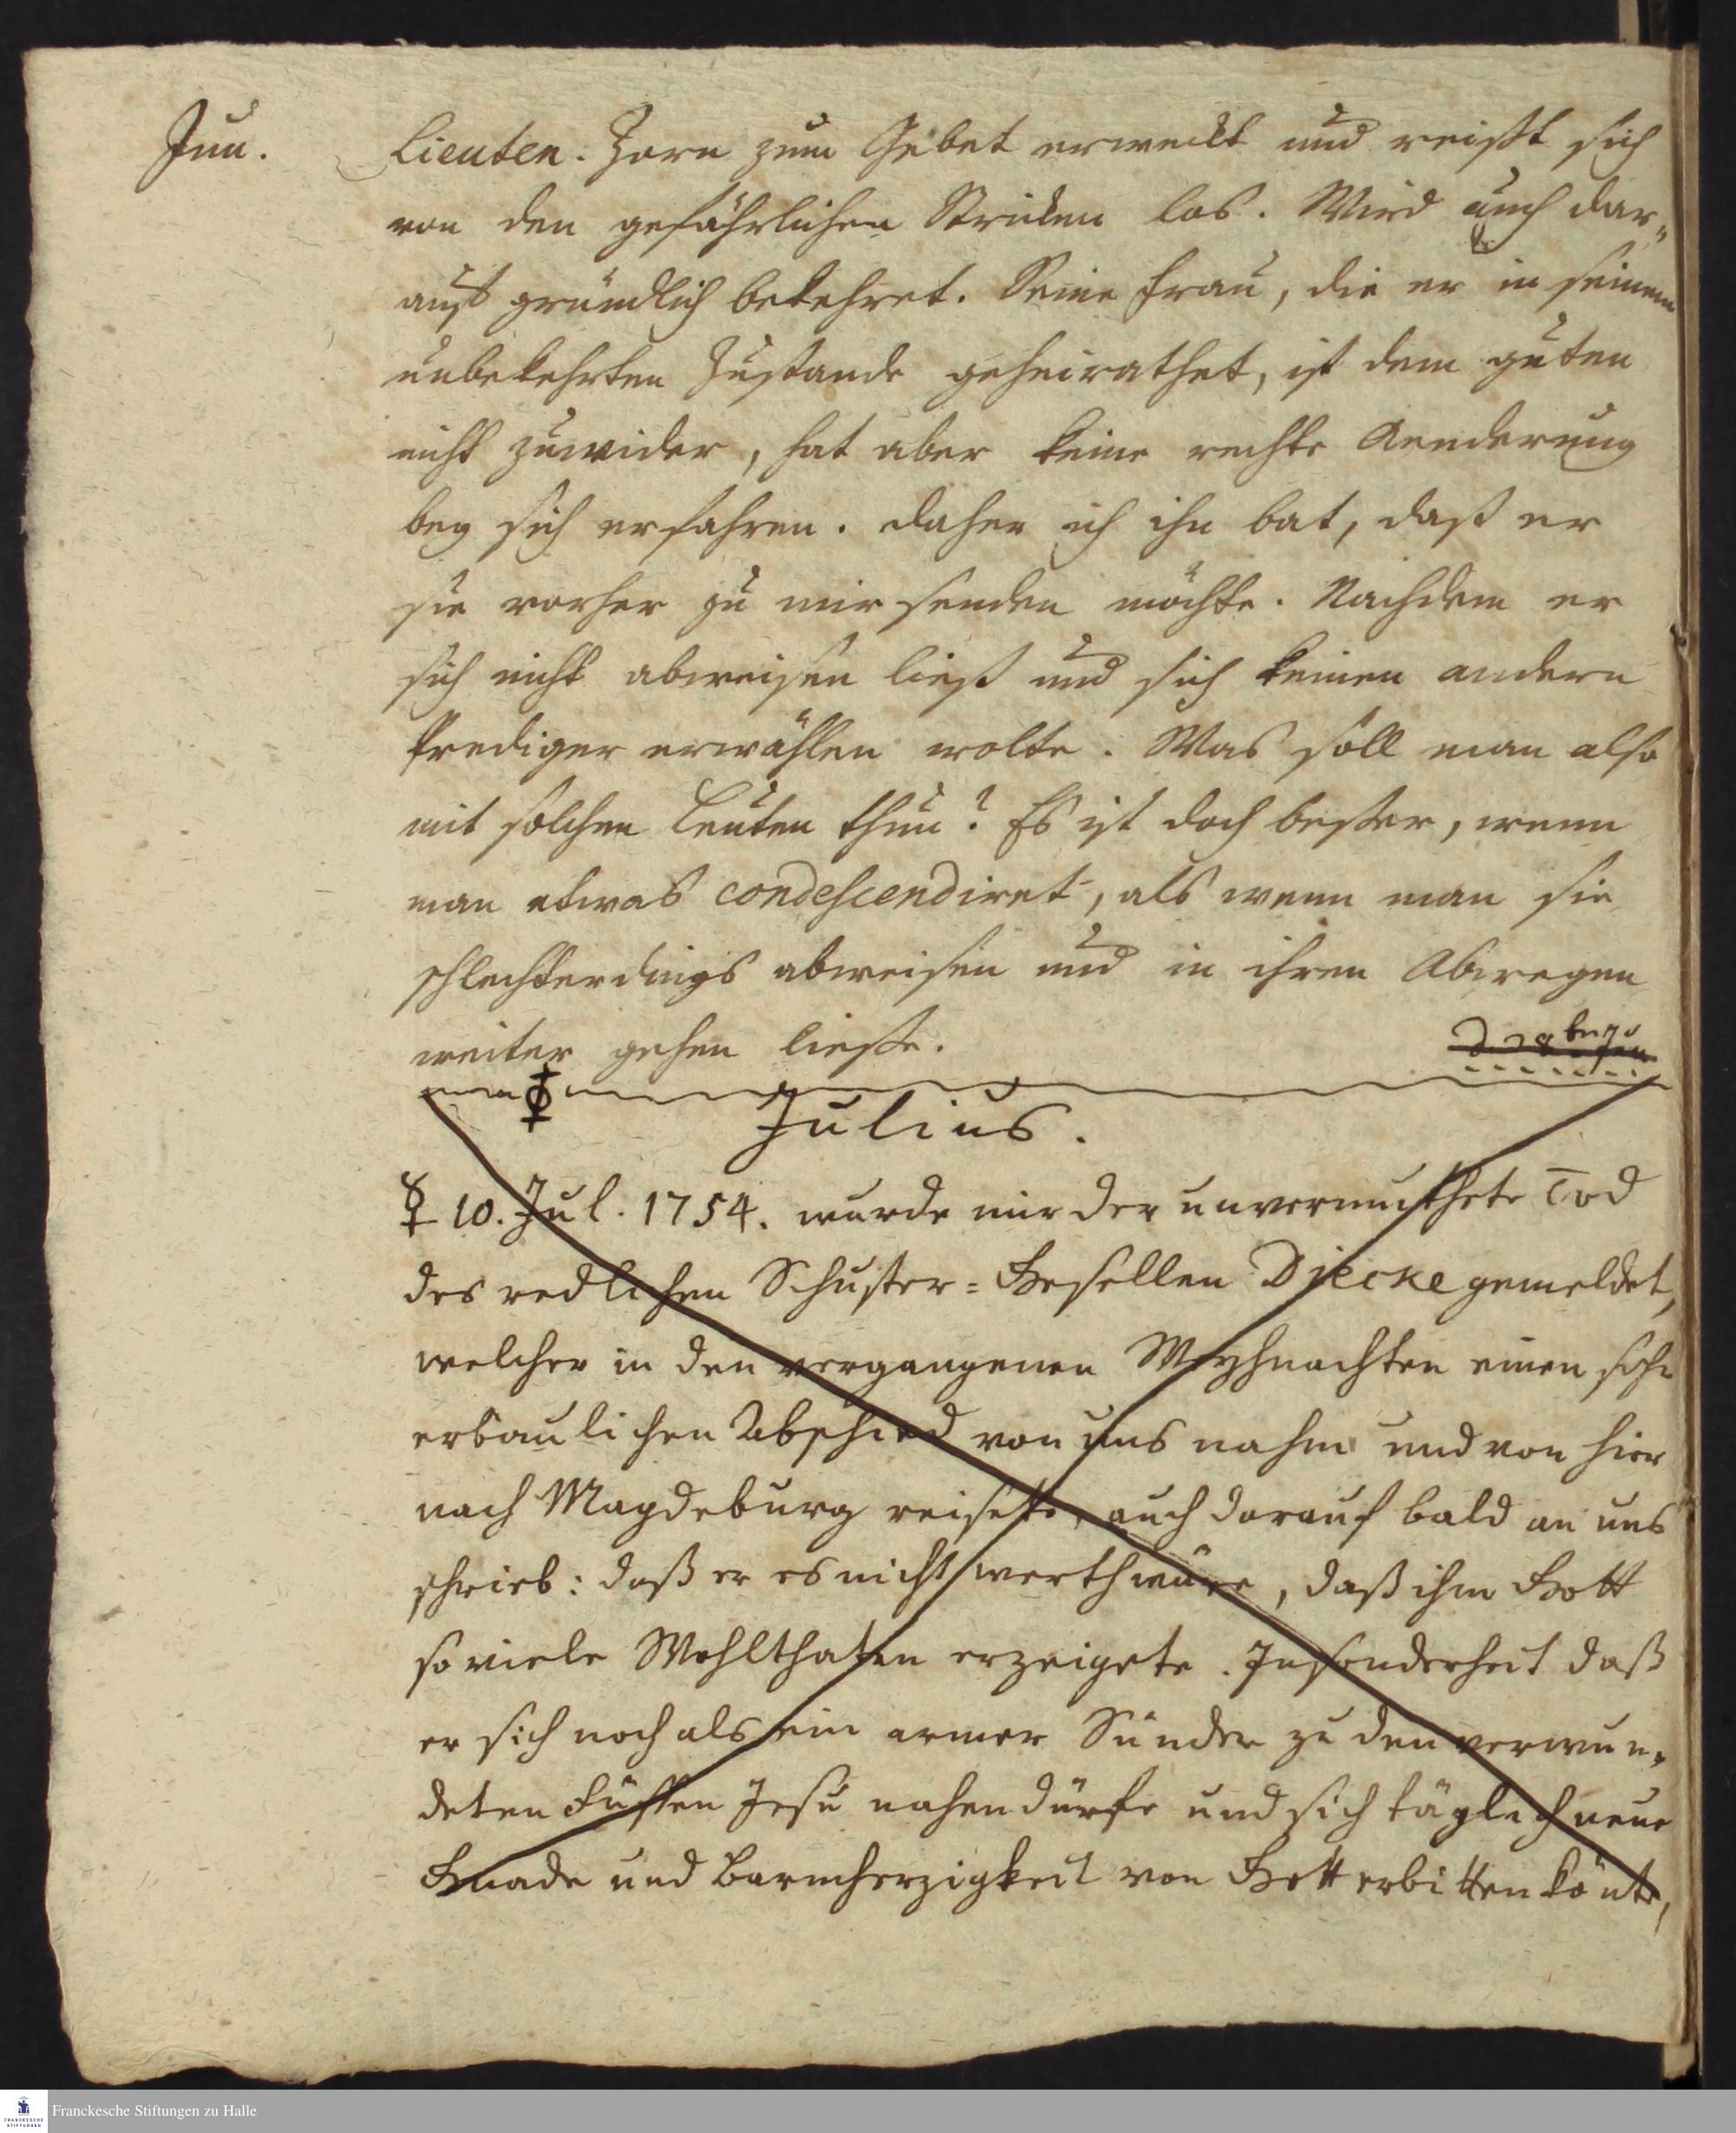 Jun.
Lieuten. Zorn zum Gebet erweckt und reißt sich
von den gefährlichen Stricken los. Wird auch dar„
auf gründlich bekehret. Seine Frau, die er in seinem
unbekehrten Zustande geheirathet, ist dem guten
nicht zuwider, hat aber keine rechte Aenderung
bey sich erfahren. Daher ich ihn bat, daß er
sie vorher zu mir senden möchte. Nachdem er
sich nicht abweisen ließ und sich keinen andern
Prediger erwählen wolte. Was soll man also
mit solchen Leuten thun? Es ist doch besser, wenn
man etwas condescendiret, als wenn man sie
schlechterdings abweisen und in ihren Abwegen
weiter gehen ließe.
Julius.
☿ 10. Jul. 1754. wurde mir der unvermuthete Tod
des redlichen Schuster=Gesellen Diecke gemeldet,
welcher in den vergangenen Weyhnachten einen sehr
erbaulichen Abschied von uns nahm und von hier
nach Magdeburg reisete, auch darauf bald an uns
schrieb: daß er es nicht werth wäre, daß ihm Gott
so viele Wohlthaten erzeigete. Insonderheit daß
er sich noch als ein armer Sünder zu den verwun„
deten Füssen Jesu nahen dürfe und sich täglich neue
Gnade und Barmherzigkeit von Gott erbitten könte,
Franckesche Stiftungen zu Halle
FRANCKESCHE
STIFTUNGEN